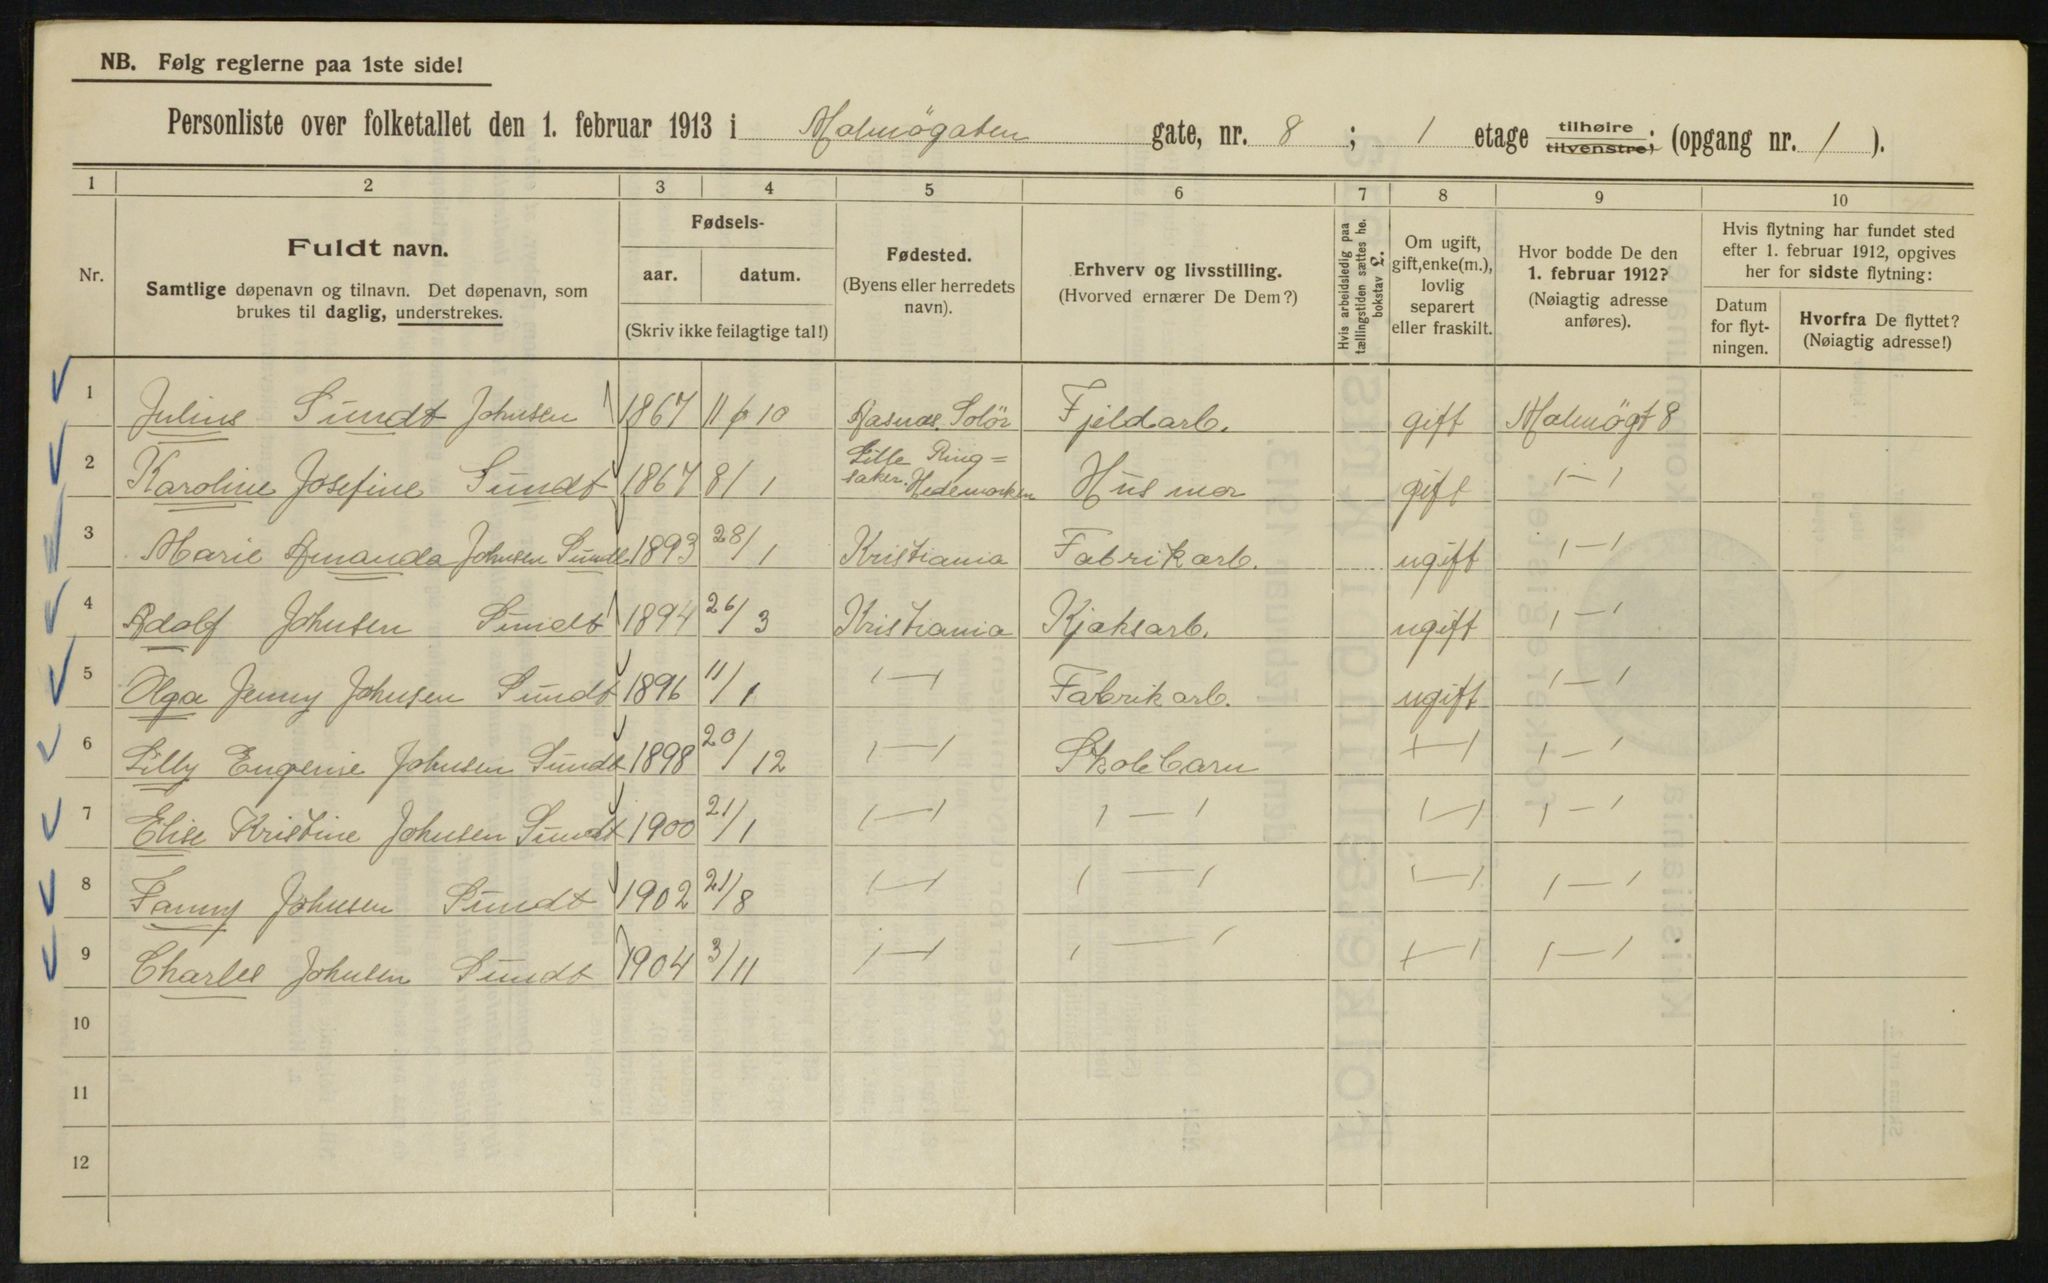 NB. Følg reglerne paa 1ste side!
Personliste over folketallet den 1. februar 1913 i Malmøgaten gate, nr. 8 ; 1 etage tilhøire tilvenstre; (opgang nr. 1 ).
1 2 3 4 5 6 7 8 9 10
Nr.
Fuldt navn.
Samtlige døpenavn og tilnavn. Det døpenavn, som
brukes til daglig, understrekes.
Fødsels-
aar. datum.
(Skriv ikke feilagtige tal!)
Fødested.
(Byens eller herredets
navn).
Erhverv og livsstilling.
(Hvorved ernærer De Dem?)
Hvis arbeidsledig paa
tællingstiden sættes he.
bokstav L.
Om ugift,
gift, enke(m.),
lovlig
separert
eller fraskilt.
Hvor bodde De den
1. februar 1912?
(Nøiagtig adresse
anføres).
Hvis flytning har fundet sted
efter 1. februar 1912, opgives
her for sidste flytning:
Datum
for flyt-
ningen.
Hvorfra De flyttet?
(Nøiagtig adresse!)
1 Julius Sundt Johnsen 1867 11/10 Aasnæs Solör Fjeldarb. gift Malmögt 8
2 Karoline Josefine Sundt 1867 8/1 Lille Ring=
saker. Hedemarken Husmor gift 1-1
3 Marie Amanda Johnsen Sundt 1893 28/1 Kristiania Fabrikarb. ugift 1-1
4 Adolf Johnsen Sundt 1894 26/3 Kristiania Kjøksarb. ugift 1-1
5 Olga Jenny Johnsen Sundt 1896 11/1 1-1 Fabrikarb. ugift 1-1
6 Lilly Eugenie Johnsen Sundt 1898 20/12 1-1 Skolebarn 1-1 1-1
7 Elise Kristine Johnsen Sundt 1900 21/1 1-1 1-1 1-1 1-1
8 Fanny Johnsen Sundt 1902 21/8 1-1 1-1 1-1 1-1
9 Charles Johnsen Sundt 1904 3/11 1-1 1-1 1-1 1-1
10
11
12